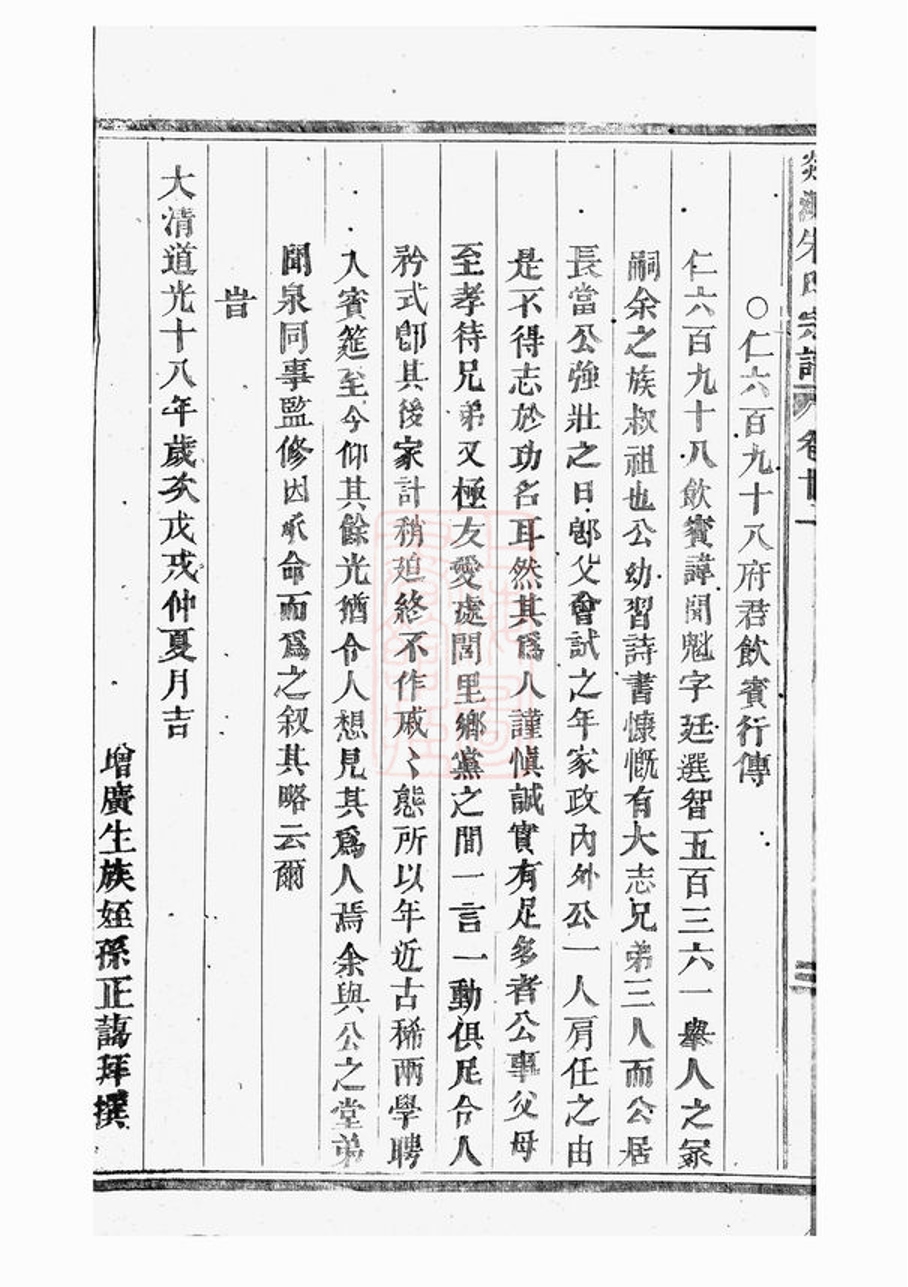 朱氏宗譜 卷廿二
○仁六百九十八府君飲賓行傳
仁六百九十八飲賓諱聞魁字廷選智五百三六一舉人之冢
嗣余之族叔祖也公幼習詩書慷慨有大志兄弟三人而公居
長當公強壯之日郎父會試之年家政內外公一人肩任之由
是不得志於功名耳然其爲人謹愼誠實有足多者公事父母
至孝待兄弟又極友愛處閭里鄉黨之間一言一動俱足令人
矜式卽其後家計稍迫終不作戚〻態所以年近古稀兩學聘
入賓筵至今仰其餘光猶令人想見其爲人焉余與公之堂弟
聞泉同事監修因承命而爲之叙其略云爾
旹
大清道光十八年歲次戊戌仲夏月吉
增廣生族姪孫正謁拜撰